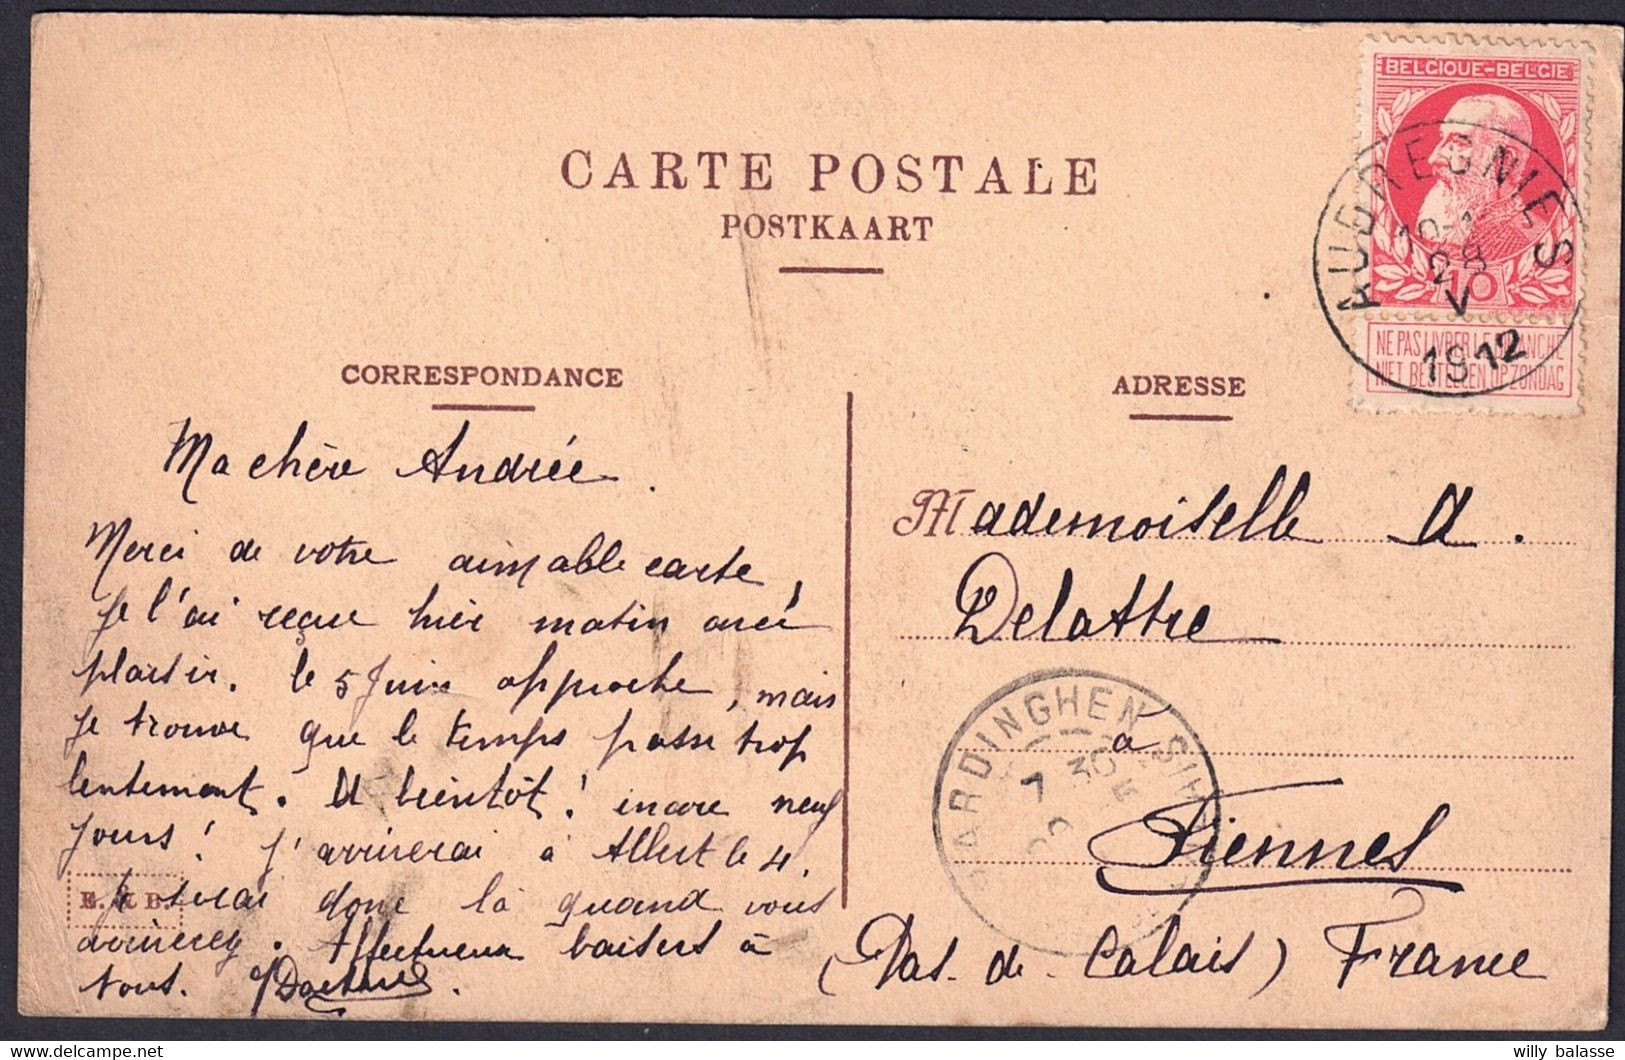 BELGIQUE-BELGIE
AUDREGNIES
28
V
1912
10
NE PAS LIVRER LE DIMANCHE
NIET BESTELLEN OP ZONDAG
CARTE POSTALE
POSTKAART
CORRESPONDANCE
Ma chère Andrée.
Merci de votre aimable carte,
je l'ai reçue hier matin avec
plaisir. le 5 Juin approche, mais
je trouve que le temps passe trop
lentement. A bientôt! encore neuf
jours! j'arriverai à Albert le 4.
je serai donc là quand vous
arriverez. Affectueux baisers à
tous.
ADRESSE
Mademoiselle A.
Delattre
à
Fiennes
(Pas-de-Calais) France
HARDINGHEN
7 30
willy balasse